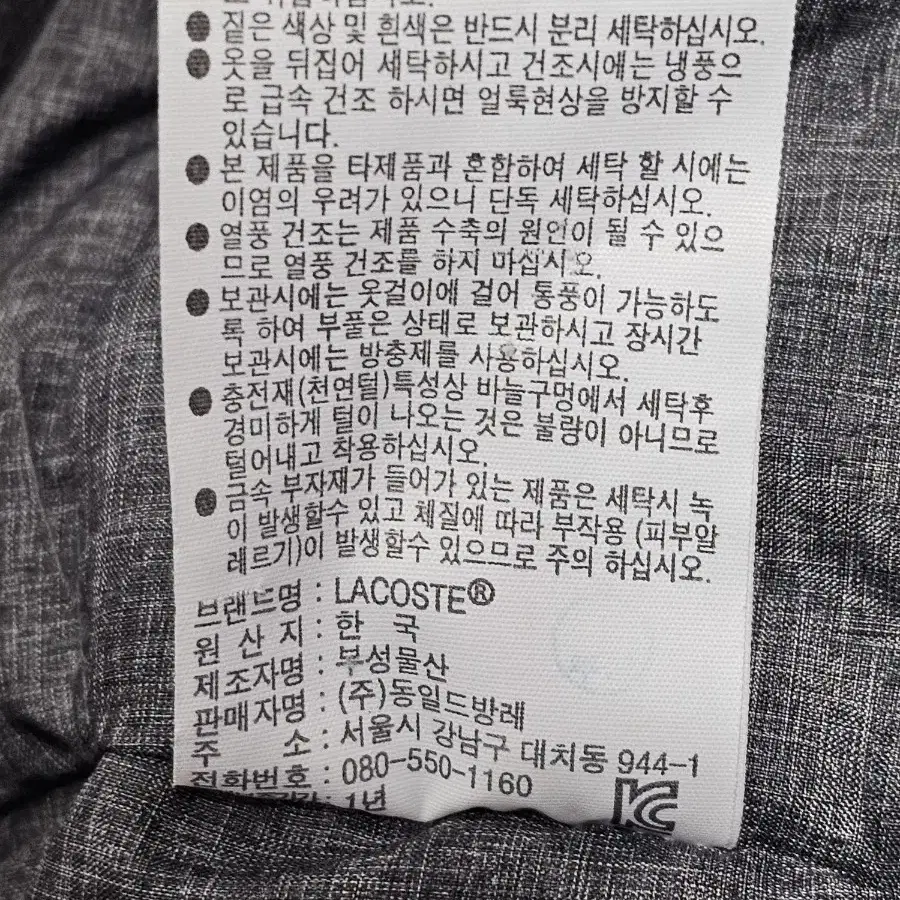 ● 짙은 색상 및 흰색은 반드시 분리 세탁하십시오.
● 옷을 뒤집어 세탁하시고 건조시에는 냉풍으
로 급속 건조 하시면 얼룩현상을 방지할 수
있습니다.
● 본 제품을 타제품과 혼합하여 세탁 할 시에는
이염의 우려가 있으니 단독 세탁하십시오.
● 열풍 건조는 제품 수축의 원인이 될 수 있으
므로 열풍 건조를 하지 마십시오.
● 보관시에는 옷걸이에 걸어 통풍이 가능하도
록 하여 부풀은 상태로 보관하시고 장시간
보관시에는 방충제를 사용하십시오.
● 충전재(천연털)특성상 바늘구멍에서 세탁후
경미하게 털이 나오는 것은 불량이 아니므로
털어내고 착용하십시오.
● 금속 부자재가 들어가 있는 제품은 세탁시 녹
이 발생할수 있고 체질에 따라 부작용 (피부알
레르기)이 발생할수 있으므로 주의 하십시오.
브랜드명 : LACOSTE®
원 산 지 : 한 국
제조자명 : 부성물산
판매자명 : (주)동일드방레
주 소 : 서울시 강남구 대치동 944-1
전화번호 : 080-550-1160
: 1년